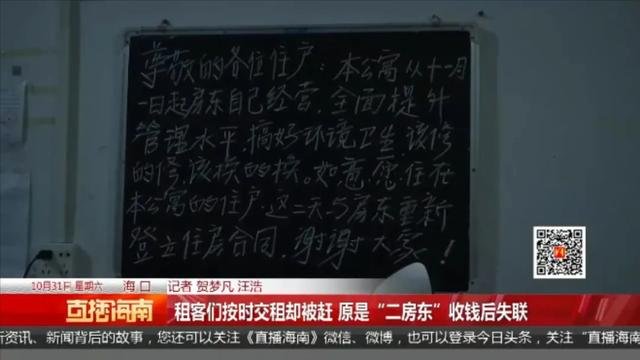 尊敬的各位住户：本公寓从十一月
一日起房东自己经营，全面提升
管理水平，搞好环境卫生，该修
的修，该换的换。如意愿住在
本公寓的住户，这二天与房东重新
登立住房合同，谢谢大家！
10月31日 星期六 海口 记者 贺梦凡 汪浩
直播海南
租客们按时交租却被赶 原是“二房东”收钱后失联
新资讯、新闻背后的故事，您还可以关注《直播海南》微信、微博，也可以登录今日头条，关注“直播海南